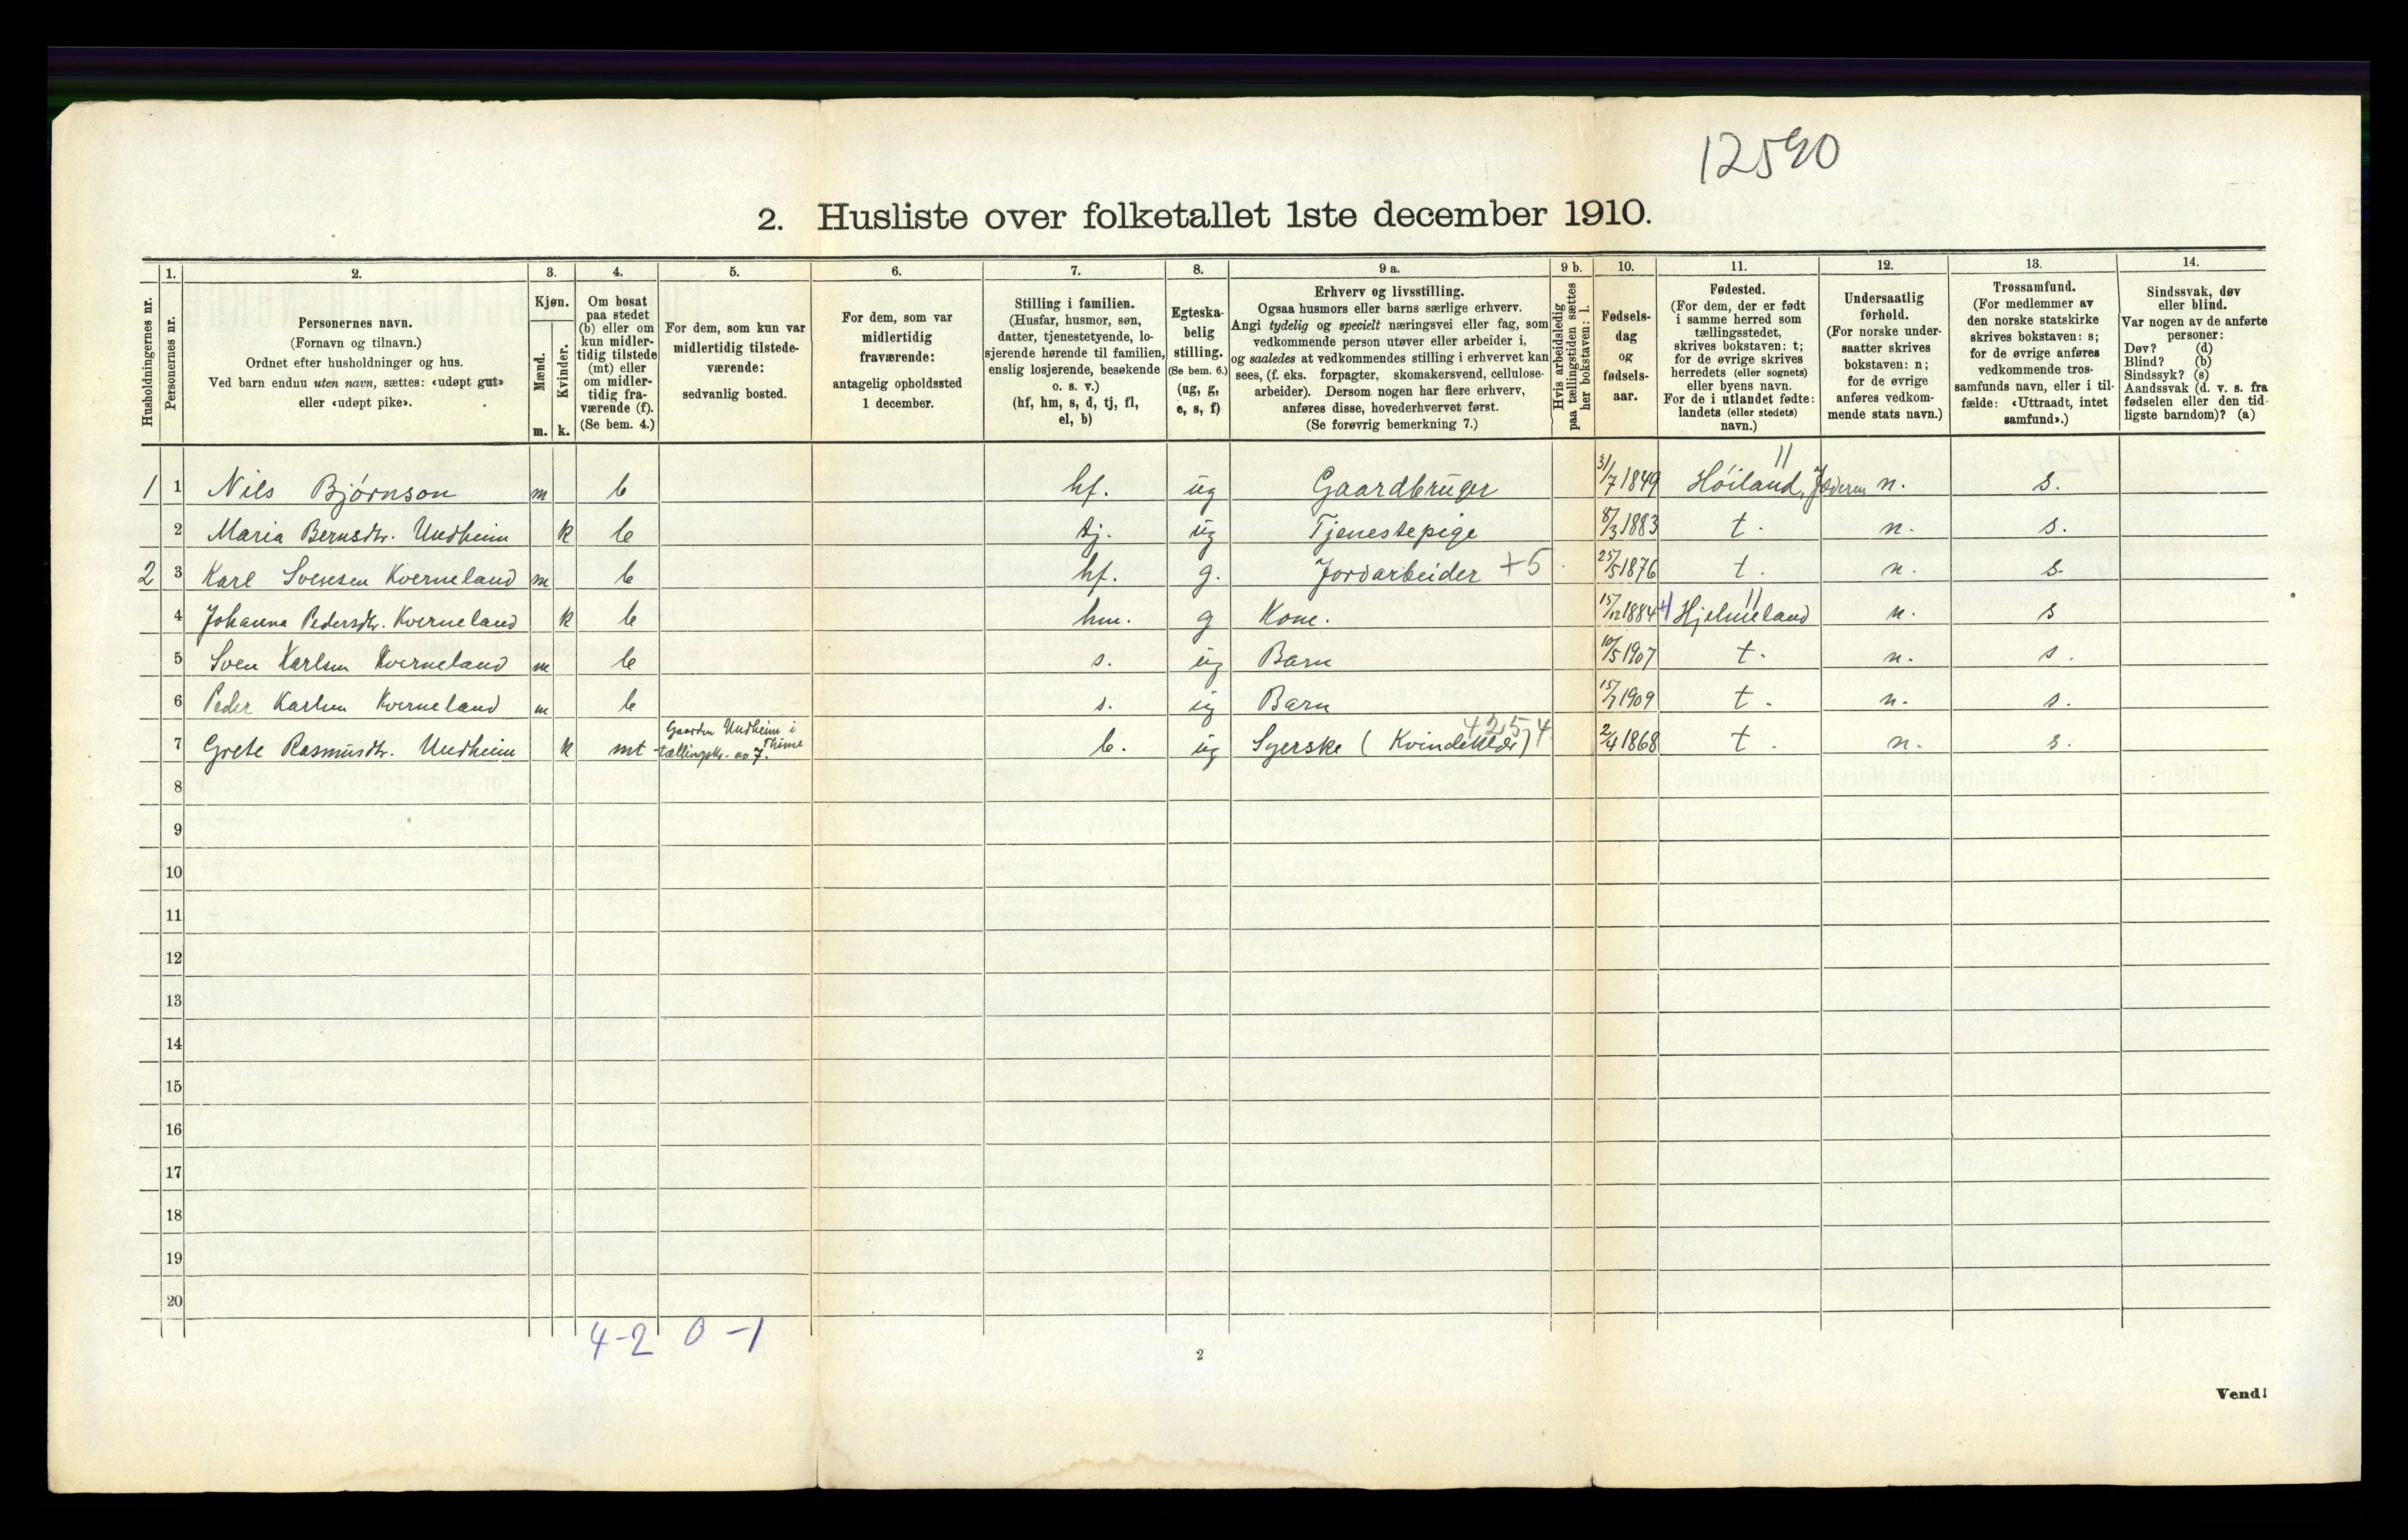 12590
2. Husliste over folketallet 1ste december 1910.
Husholdningernes nr.
1.
Personernes nr.
2.
Personernes navn.
(Fornavn og tilnavn.)
Ordnet efter husholdninger og hus.
Ved barn endnu uten navn, sættes: «udøpt gut»
eller «udøpt pike».
3.
Kjøn.
Mænd.
Kvinder.
m. k.
4.
Om bosat
paa stedet
(b) eller om
kun midler-
tidig tilstede
(mt) eller
om midler-
tidig fra-
værende (f).
(Se bem. 4.)
5.
For dem, som kun var
midlertidig tilstede-
værende:
sedvanlig bosted.
6.
For dem, som var
midlertidig
fraværende:
antagelig opholdssted
1 december.
7.
Stilling i familien.
(Husfar, husmor, søn,
datter, tjenestetyende, lo-
sjerende hørende til familien,
enslig losjerende, besøkende
o. s. v.)
(hf, hm, s, d, tj, fl,
el, b)
8.
Egteska-
belig
stilling.
(Se bem. 6.)
(ug, g,
e, s, f)
9 a.
Erhverv og livsstilling.
Ogsaa husmors eller barns særlige erhverv.
Angi tydelig og specielt næringsvei eller fag, som
vedkommende person utøver eller arbeider i,
og saaledes at vedkommendes stilling i erhvervet kan
sees, (f. eks. forpagter, skomakersvend, cellulose-
arbeider). Dersom nogen har flere erhverv,
anføres disse, hovederhvervet først.
(Se forøvrig bemerkning 7.)
9 b.
Hvis arbeidsledig
paa tællingstiden sættes
her bokstaven: l.
10.
Fødsels-
dag
og
fødsels-
aar.
11.
Fødested.
(For dem, der er født
i samme herred som
tællingsstedet,
skrives bokstaven: t;
for de øvrige skrives
herredets (eller sognets)
eller byens navn.
For de i utlandet fødte:
landets (eller stedets)
navn.)
12.
Undersaatlig
forhold.
(For norske under-
saatter skrives
bokstaven: n;
for de øvrige
anføres vedkom-
mende stats navn.)
13.
Trossamfund.
(For medlemmer av
den norske statskirke
skrives bokstaven: s;
for de øvrige anføres
vedkommende tros-
samfunds navn, eller i til-
fælde: «Uttraadt, intet
samfund».)
14.
Sindssvak, døv
eller blind.
Var nogen av de anførte
personer:
Døv? (d)
Blind? (b)
Sindssyk? (s)
Aandssvak (d. v. s. fra
fødselen eller den tid-
ligste barndom)? (a)
1 1 Nils Bjørnson m b hf. ug Gaardbruger 31/7 1849 11 Høiland, Jæderen n. s.
2 Maria Bernsdtr. Undheim k b tj. ug Tjenestepige 8/3 1883 t. n. s.
2 3 Karl Svensen Kverneland m b hf. g. Jordarbeider +5 25/5 1876 t. n. s.
4 Johanna Pedersdtr. Kverneland k b hm. g Kone. 15/12 1884 4 11 Hjelmeland n. s
5 Sven Karlsen Kverneland m b s. ug Barn 10/5 1907 t. n. s.
6 Peder Karlsen Kverneland m b s. ug Barn 15/7 1909 t. n. s.
7 Grete Rasmusdtr. Undheim k mt Gaarden Undheim i Thime tællingskr. no 7. b. ug Syerske (Kvindeklær) 4254 2/4 1868 t. n. s.
8
9
10
11
12
13
14
15
16
17
18
19
20
4-2 0-1
2
Vend!